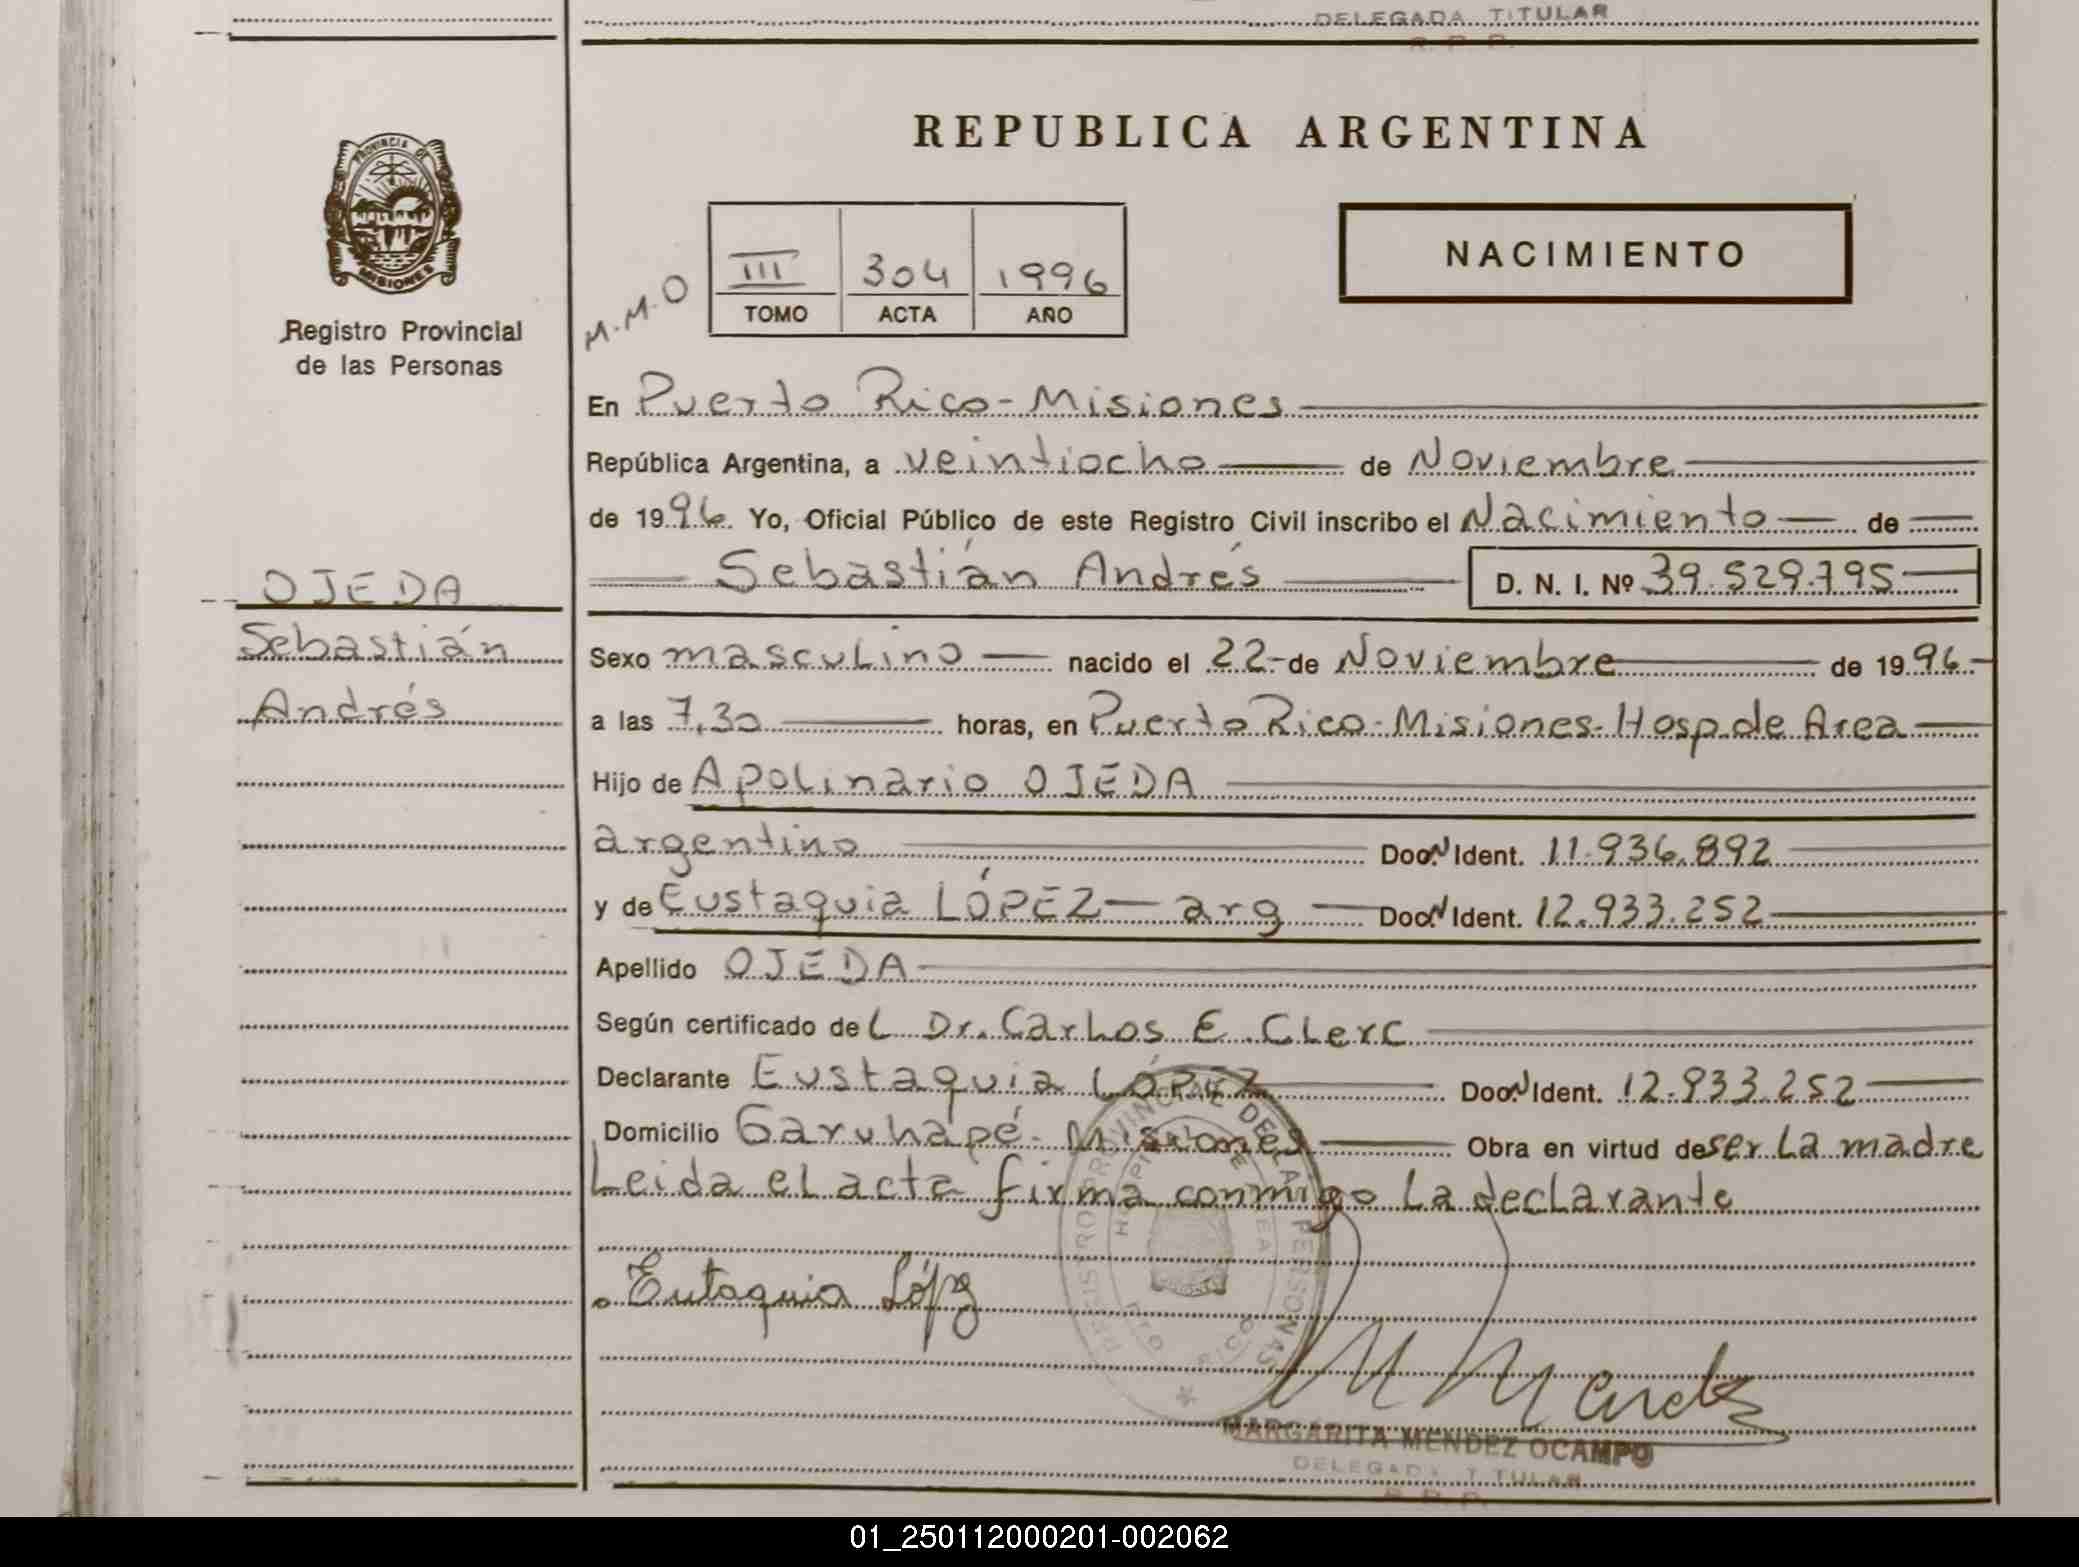 DELEGADA TITULAR
R. P. P.
PROVINCIA DE
MISIONES
Registro Provincial
de las Personas
REPUBLICA ARGENTINA
NACIMIENTO
M.M.O
III 304 1996
TOMO ACTA AÑO
En Puerto Rico - Misiones
República Argentina, a veintiocho de Noviembre
de 1996. Yo, Oficial Público de este Registro Civil inscribo el Nacimiento de
Sebastián Andrés D. N. I. Nº 39.529.795
OJEDA
Sebastián
Andrés
Sexo masculino nacido el 22 de Noviembre de 1996
a las 7,30 horas, en Puerto Rico - Misiones - Hosp. de Area
Hijo de Apolinario OJEDA
argentino Doc. N Ident. 11.936.892
y de Eustaquia LÓPEZ - arg Doc. N Ident. 12.933.252
Apellido OJEDA
Según certificado del Dr. Carlos E. Clerc
Declarante Eustaquia LÓPEZ Doc. N Ident. 12.933.252
Domicilio Garuhapé - Misiones Obra en virtud de ser la madre
Leida el acta firma conmigo la declarante
REGISTRO PROVINCIAL DE LAS PERSONAS
PTO RICO
Eutaquia López
M Mendez
MARGARITA MENDEZ OCAMPO
DELEGADA TITULAR
R. P. P.
01_250112000201-002062